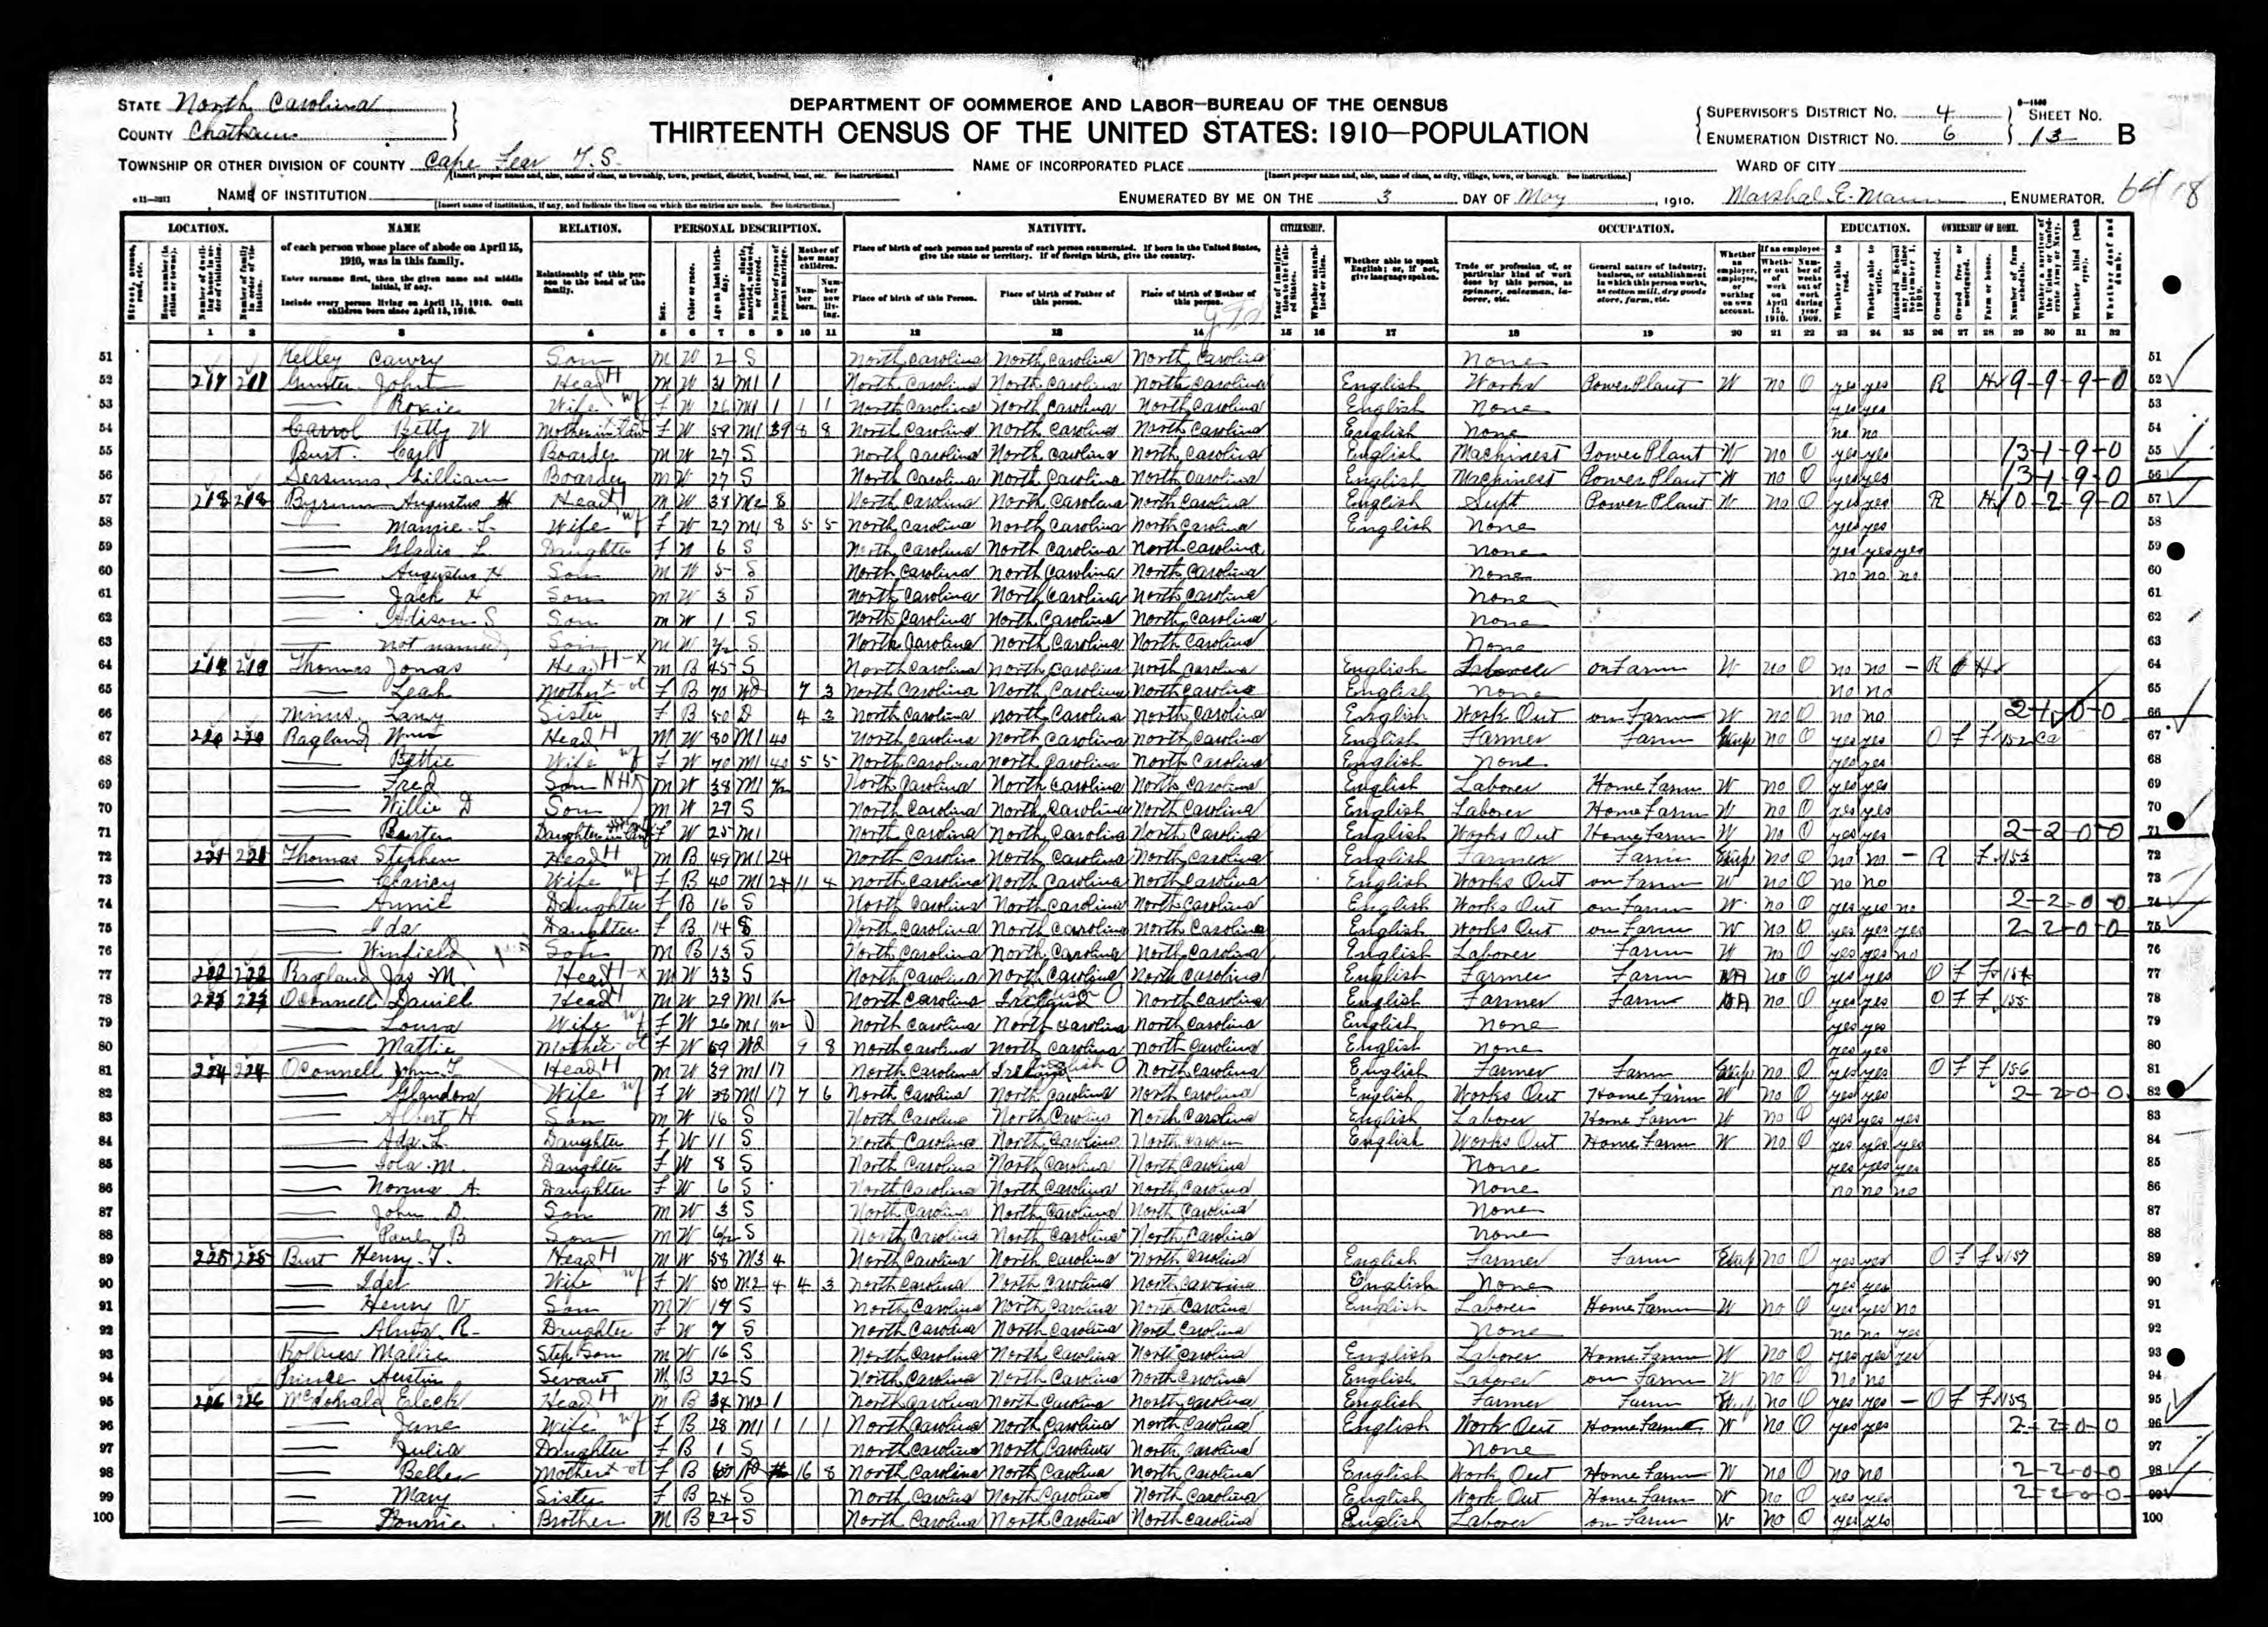 D-1586
STATE North Carolina
COUNTY Chatham
DEPARTMENT OF COMMERCE AND LABOR—BUREAU OF THE CENSUS
THIRTEENTH CENSUS OF THE UNITED STATES: 1910—POPULATION
SUPERVISOR'S DISTRICT No. 4 SHEET No.
ENUMERATION DISTRICT No. 6 13 B
TOWNSHIP OR OTHER DIVISION OF COUNTY Cape Fear T.S. NAME OF INCORPORATED PLACE WARD OF CITY
NAME OF INSTITUTION ENUMERATED BY ME ON THE 3 DAY OF May, 1910. Marshal E. Mann, ENUMERATOR.
LOCATION. NAME RELATION. PERSONAL DESCRIPTION. NATIVITY. CITIZENSHIP. OCCUPATION. EDUCATION. OWNERSHIP OF HOME.
of each person whose place of abode on April 15, 1910, was in this family.
Enter surname first, then the given name and middle initial, if any.
Include every person living on April 15, 1910. Omit children born since April 15, 1910.
Relationship of this person to the head of the family.
Place of birth of each person and parents of each person enumerated. If born in the United States, give the state or territory. If of foreign birth, give the country.
Place of birth of this Person. Place of birth of Father of this person. Place of birth of Mother of this person.
Whether able to speak English; or, if not, give language spoken.
1 2 3 4 5 6 7 8 9 10 11 12 13 14 15 16 17 18 19 20 21 22 23 24 25 26 27 28 29 30 31 32
51 Kelley Son M W 2 S North Carolina North Carolina North Carolina None 51
52 217 217 Gunter John Head M W 31 M1 1 North Carolina North Carolina North Carolina English Works Power Plant W no 0 yes yes R H 9-9-9-0 52
53 Roxie Wife F W 26 M1 1 1 1 North Carolina North Carolina North Carolina English None yes yes 53
54 Carrol Betty W Mother in law F W 59 M1 39 8 8 North Carolina North Carolina North Carolina English None no no 54
55 Burt Carl Boarder M W 27 S North Carolina North Carolina North Carolina English Machinest Power Plant W no 0 yes yes 13-1-9-0 55
56 Gilliam Boarder M W 27 S North Carolina North Carolina North Carolina English Machinest Power Plant W no 0 yes yes 13-1-9-0 56
57 218 218 Augustus H Head M W 38 M2 8 North Carolina North Carolina North Carolina English Supt Power Plant W no 0 yes yes R H 10-2-9-0 57
58 Mamie L. Wife F W 27 M1 8 5 5 North Carolina North Carolina North Carolina English None yes yes 58
59 Gladis L. Daughter F W 6 S North Carolina North Carolina North Carolina None yes yes yes 59
60 Augustus H Son M W 5 S North Carolina North Carolina North Carolina None no no no 60
61 Jack H Son M W 3 S North Carolina North Carolina North Carolina None 61
62 Adison S Son M W 1 S North Carolina North Carolina North Carolina None 62
63 not named Son M W S North Carolina North Carolina North Carolina None 63
64 219 219 Thomas Jonas Head M B 45 S North Carolina North Carolina North Carolina English Laborer on Farm W no 0 no no R H 64
65 Leah Mother F B 70 Wd 7 3 North Carolina North Carolina North Carolina English None no no 65
66 Sister F B 50 D 4 3 North Carolina North Carolina North Carolina English Work Out on Farm W no 0 no no 2-1-0-0 66
67 220 220 Ragland Wm Head M W 80 M1 40 North Carolina North Carolina North Carolina English Farmer Farm Emp no 0 yes yes O F F 152 ca 67
68 Bettie Wife F W 70 M1 40 5 5 North Carolina North Carolina North Carolina English None yes yes 68
69 Fred Son M W 38 M1 North Carolina North Carolina North Carolina English Laborer Home Farm W no 0 yes yes 69
70 Willie D Son M W 27 S North Carolina North Carolina North Carolina English Laborer Home Farm W no 0 yes yes 70
71 Daughter in law F W 25 M1 North Carolina North Carolina North Carolina English Works Out Home Farm W no 0 yes yes 2-2-0-0 71
72 221 221 Thomas Stephen Head M B 49 M1 24 North Carolina North Carolina North Carolina English Farmer Farm Emp no 0 no no R F 153 72
73 Wife F B 40 M1 24 11 4 North Carolina North Carolina North Carolina English Works Out on Farm W no 0 no no 73
74 Annie Daughter F B 16 S North Carolina North Carolina North Carolina English Works Out on Farm W no 0 yes yes no 2-2-0-0 74
75 Ida Daughter F B 14 S North Carolina North Carolina North Carolina English Works Out on Farm W no 0 yes yes yes 2-2-0-0 75
76 Winfield Son M B 13 S North Carolina North Carolina North Carolina English Laborer Farm W no 0 yes yes no 76
77 222 222 Ragland Jas M Head M W 33 S North Carolina North Carolina North Carolina English Farmer Farm no 0 yes yes O F F 154 77
78 223 223 OConnell Daniel Head M W 29 M1 North Carolina Ireland North Carolina English Farmer Farm no 0 yes yes O F F 155 78
79 Wife F W 26 M1 0 North Carolina North Carolina North Carolina English None yes yes 79
80 Mattie Mother F W 59 Wd 9 8 North Carolina North Carolina North Carolina English None yes yes 80
81 224 224 OConnell John T. Head M W 39 M1 17 North Carolina Ireland North Carolina English Farmer Farm Emp no 0 yes yes O F F 156 81
82 Glandora Wife F W 38 M1 17 7 6 North Carolina North Carolina North Carolina English Works Out Home Farm W no 0 yes yes 2-2-0-0 82
83 Albert H Son M W 16 S North Carolina North Carolina North Carolina English Laborer Home Farm W no 0 yes yes yes 83
84 Ada L. Daughter F W 11 S North Carolina North Carolina North Carolina English Works Out Home Farm W no 0 yes yes yes 84
85 Iola M. Daughter F W 8 S North Carolina North Carolina North Carolina None yes yes yes 85
86 Norma A. Daughter F W 6 S North Carolina North Carolina North Carolina None no no no 86
87 John D. Son M W 3 S North Carolina North Carolina North Carolina None 87
88 Paul B Son M W S North Carolina North Carolina North Carolina None 88
89 225 225 Burt Henry T. Head M W 58 M3 4 North Carolina North Carolina North Carolina English Farmer Farm Emp no 0 yes yes O F F 157 89
90 Wife F W 50 M2 4 4 3 North Carolina North Carolina North Carolina English None yes yes 90
91 Henry V Son M W S North Carolina North Carolina North Carolina English Laborer Home Farm W no 0 yes yes no 91
92 Alma R. Daughter F W 7 S North Carolina North Carolina North Carolina None no no yes 92
93 Step Son M W 16 S North Carolina North Carolina North Carolina English Laborer Home Farm W no 0 yes yes yes 93
94 Prince Austin Servant M B 22 S North Carolina North Carolina North Carolina English Laborer on Farm W no 0 no no 94
95 226 226 McDonald Eleck Head M B M2 1 North Carolina North Carolina North Carolina English Farmer Farm Emp no 0 yes yes O F F 158 95
96 Jane Wife F B 28 M1 1 1 1 North Carolina North Carolina North Carolina English Work Out Home Farm W no 0 yes yes 2-2-0-0 96
97 Julia Daughter F B 1 S North Carolina North Carolina North Carolina None 97
98 Bella Mother F B 60 16 8 North Carolina North Carolina North Carolina English Work Out Home Farm W no 0 no no 2-2-0-0 98
99 Mary Sister F B 24 S North Carolina North Carolina North Carolina English Work Out Home Farm W no 0 yes yes 2-2-0-0 99
100 Brother M B 22 S North Carolina North Carolina North Carolina English Laborer on Farm W no 0 yes yes 100